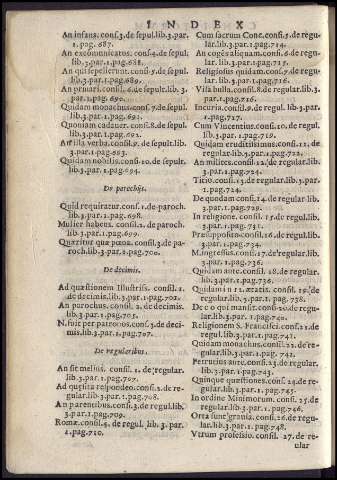 INDEX
An infans. cons.3. de sepul.lib.3.par.
1.pag.687.
An excommunicatos. cons.4. de sepul.
lib.3.par.1.pag.688.
An qui sepelierunt. cons.5. de sepul.
lib.3.par.1.pag.689.
An privari. consil.6. de sepulr. lib.
3.par.1.pag.690.
Quidam monachus. cons.7. de sepul.
lib.3.par.1.pag.691.
Quoniam cadauer. cons.8. de sepul.
lib.3.par.1.pag.692.
An illa verba. cons.9. de sepul.lib.
3.par.1.pag.693.
Quidam nobilis. cons.10. de sepulr.
lib.3.par.1.pag.694.
De parochijs.
Quid requiratur. cons.1. de paroch.
lib.3.par.1.pag.698.
Mulier habens. cons.2. de paroch.
lib.3.par.1.pag.699.
Quæritur quæ pœna. consil.3. de pa-
roch.lib.3.par.1.pag.700.
De decimis.
Ad quæstionem Illustriss. consil.1.
de decimis.lib.3.par.1.pag.702.
An parochus. consil.2. de decimis.
lib.3.par.1.pag.705.
N. fuit per patronos. cons.3. de deci-
mis.lib.3.par.1.pag.707.
De regularibus.
An sit melius. consil. 1. de regular.
lib.3.par.1.pag.707.
Ad quæsita respondeo. cons.2. de re-
gular.lib.3.par.1.pag.708.
An parentibus. cons.3. de regul.lib.
3.par.1.pag.709.
Romæ. consil.4. de regul. lib.3. par.
1.pag.710.
Cum sacrum Conc. cons.5. de regu-
lar.lib.3.par.1.pag.714.
An cogés aliquam. cons.6. de regu-
lar.lib.3.par.1.pag.715.
Religiosus quidam. cons.7. de regu-
lar.lib.3.par.1.pag.716.
Visa bulla. cons.8. de regular.lib.3.
par.1.pag.716.
Incuria. cons.9. de regul. lib.3.par.
1.pag.717.
Cum Vincentius. cons.10. de regul.
lib.3.par.1.pag.719.
Quidam eruditissimus. cons.11. de
regular.lib.3.par.1.pag.722.
An milites. cons.12. de regular.lib.
3.par.1.pag.723.
Titio. cons.13. de regular.lib.3.par.
1.pag.724.
De quodam cons.14. de regular.lib.
3.par.1.pag.729.
In religione. consil.15. de regul.lib.
3.par.1.pag.731.
Præsupposito. cons.16. de regul.lib.
3.par.1.pag.734.
M. ingressus. cons.17. de regular.lib.
3.par.1.pag.736.
Quidam ante. consil.18. de regular.
lib.3.par.1.pag.736.
Quidam in 12. ætatis. consil. 19. de
regular.lib.3.par.1.pag.738.
De eo qui mansit. cons.20. de regu-
lar.lib.3.par.1.pag.740.
Religionem S. Francisci. cons.21. de
regular.lib.3.par.1.pag.741.
Quoniam monachus. consil.22. de re-
gular.lib.3.par.1.pag.742.
Petrucius aute. cons.23. de regular.
lib.3.par.1.pag.743.
Quinque quæstiones. cons.24. de re-
gular.lib.3.par.1.pag.745.
In ordine Minimorum. cons.25. de
regular.lib.3.par.1.pag.746.
Orta sunt grauia. cons.26. de regu-
lar.lib.3.par.1.pag.748.
Vtrum professio. consil. 27. de re-
ular